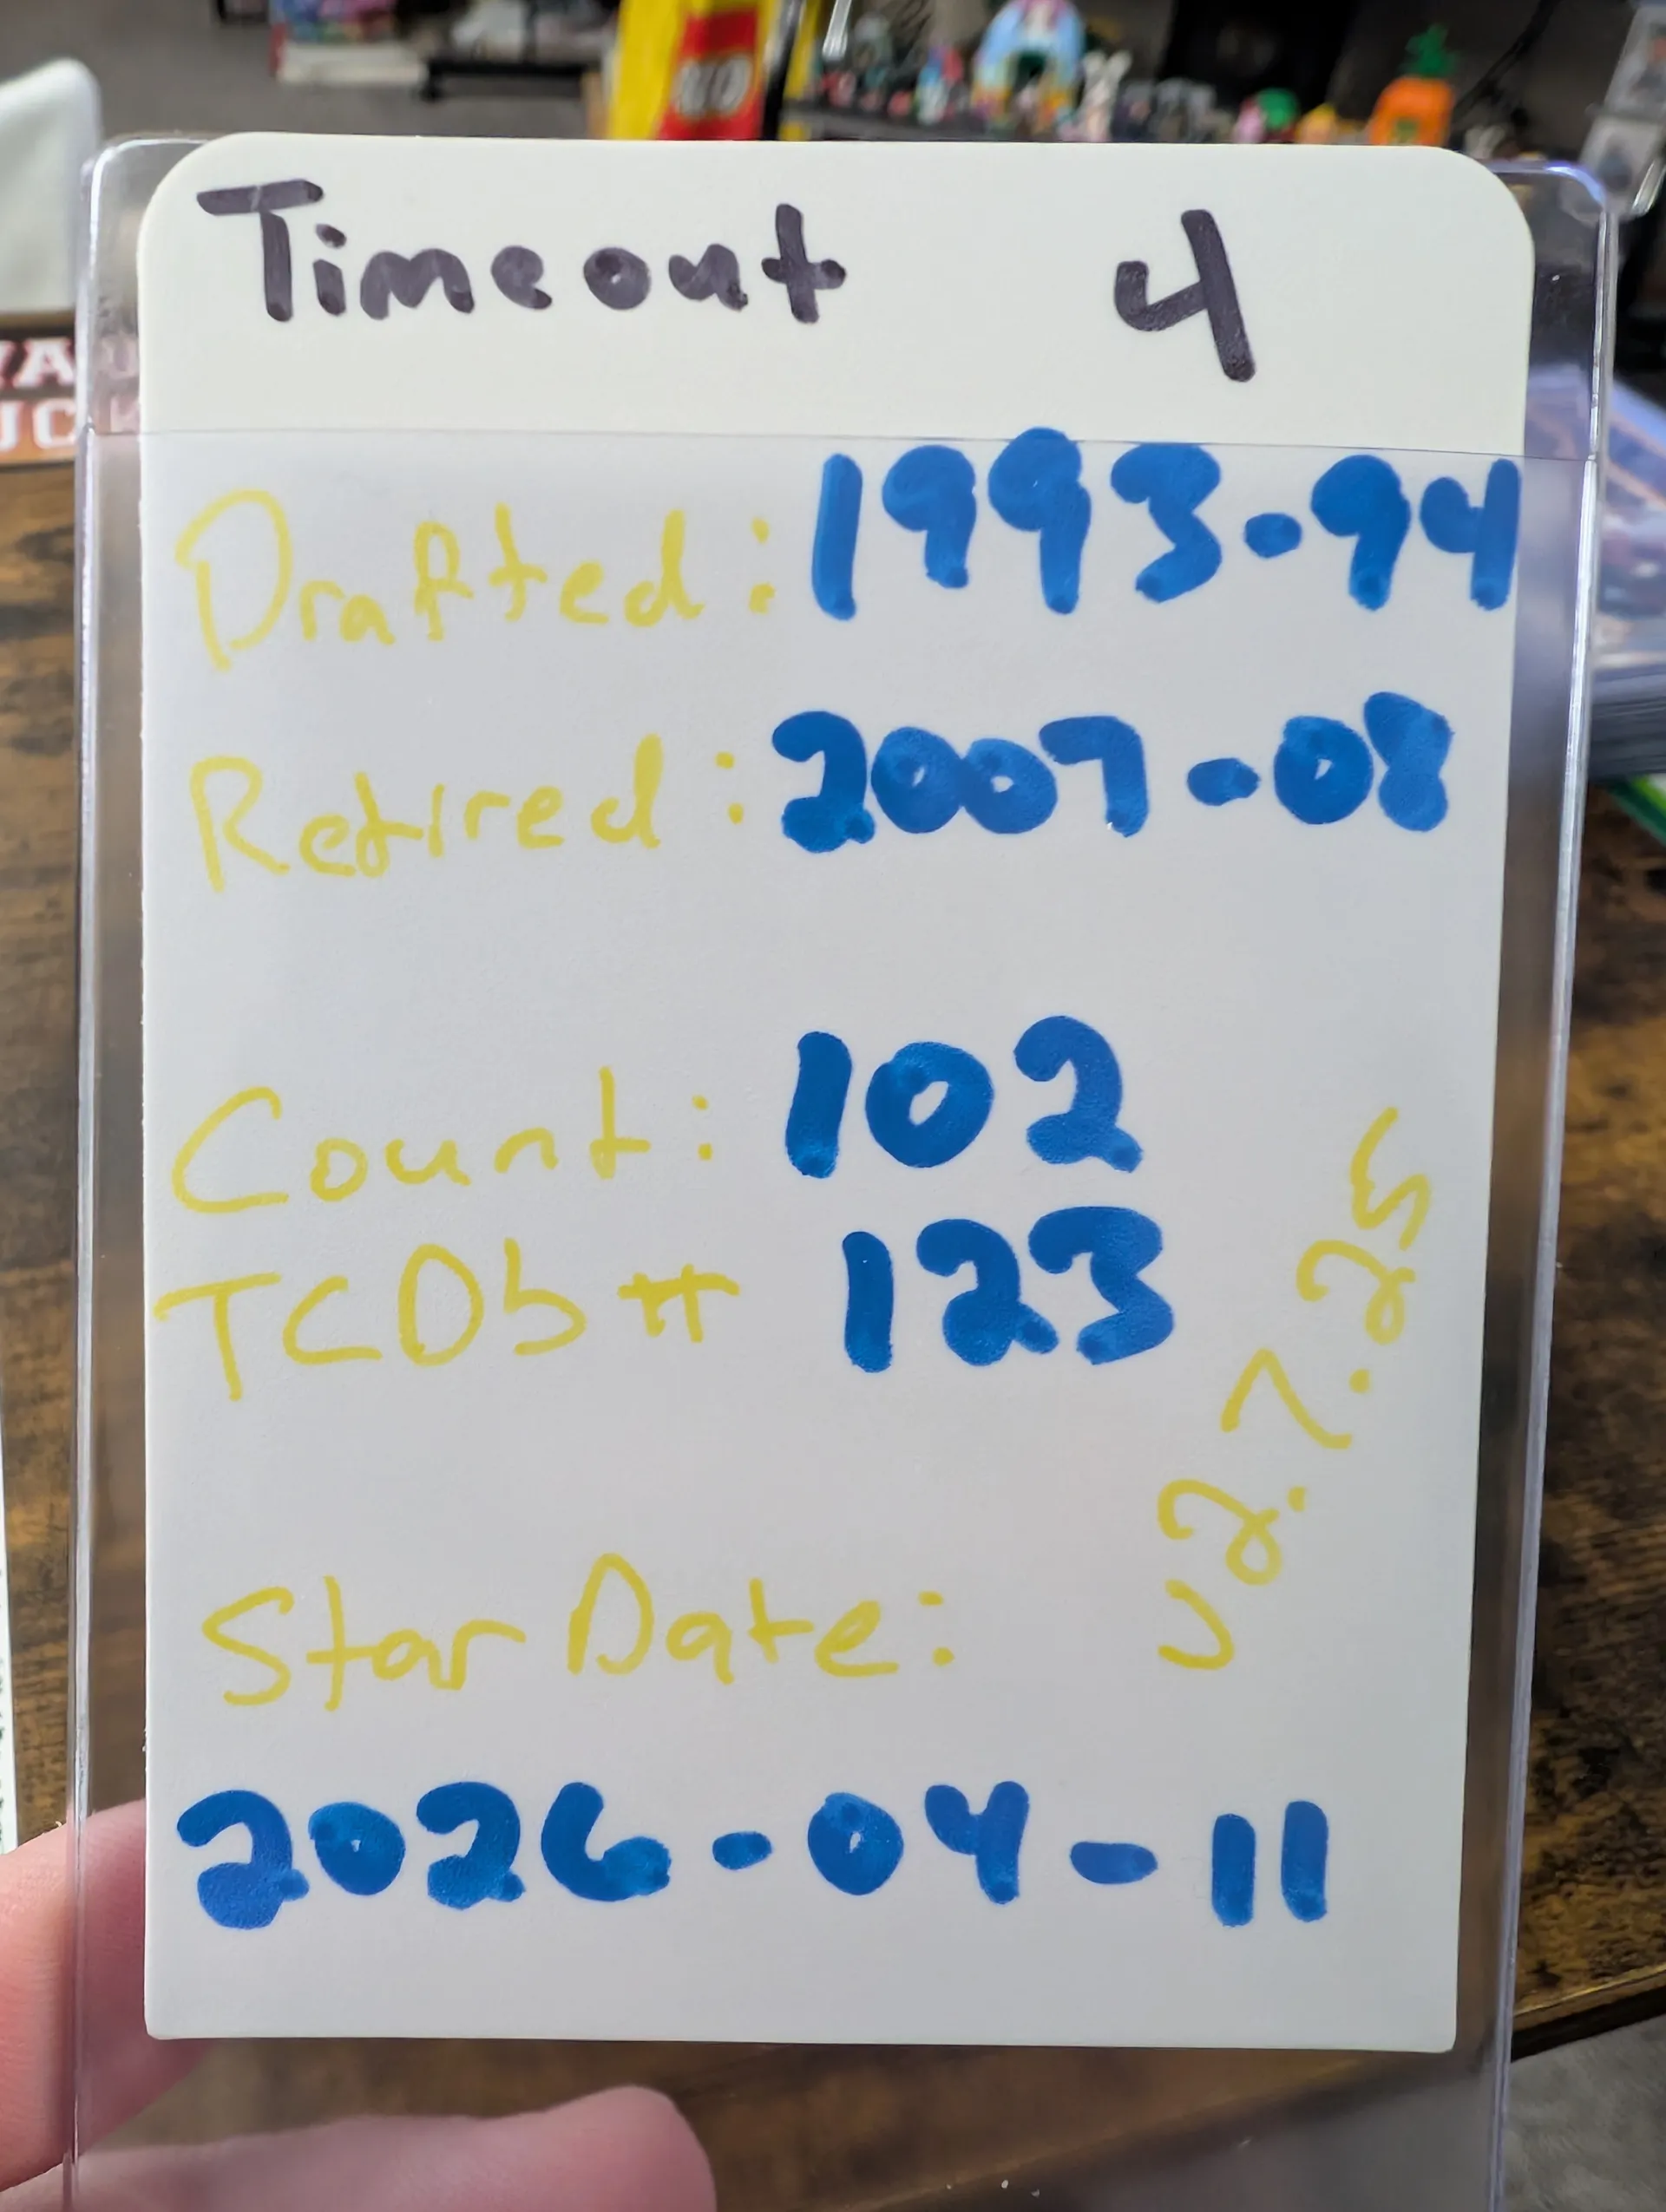 Timeout 4
Drafted: 1993-94
Retired: 2007-08
Count: 102
TCDb # 123
v2.7.25
Star Date:
2026-04-11